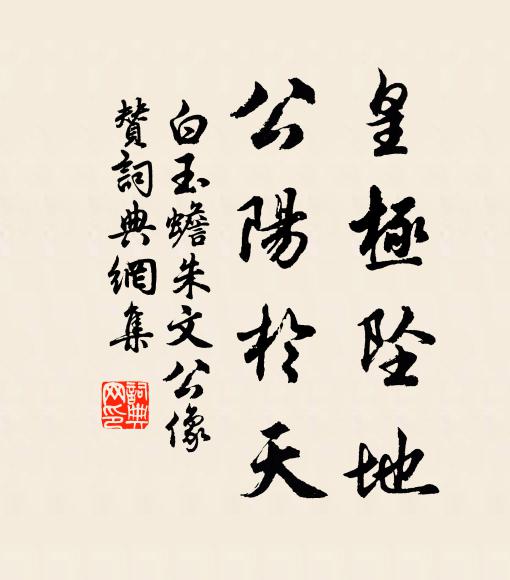 皇極坠地
公陽於天
白玉蟾朱文公像
贊詞典網集
詞典
网印